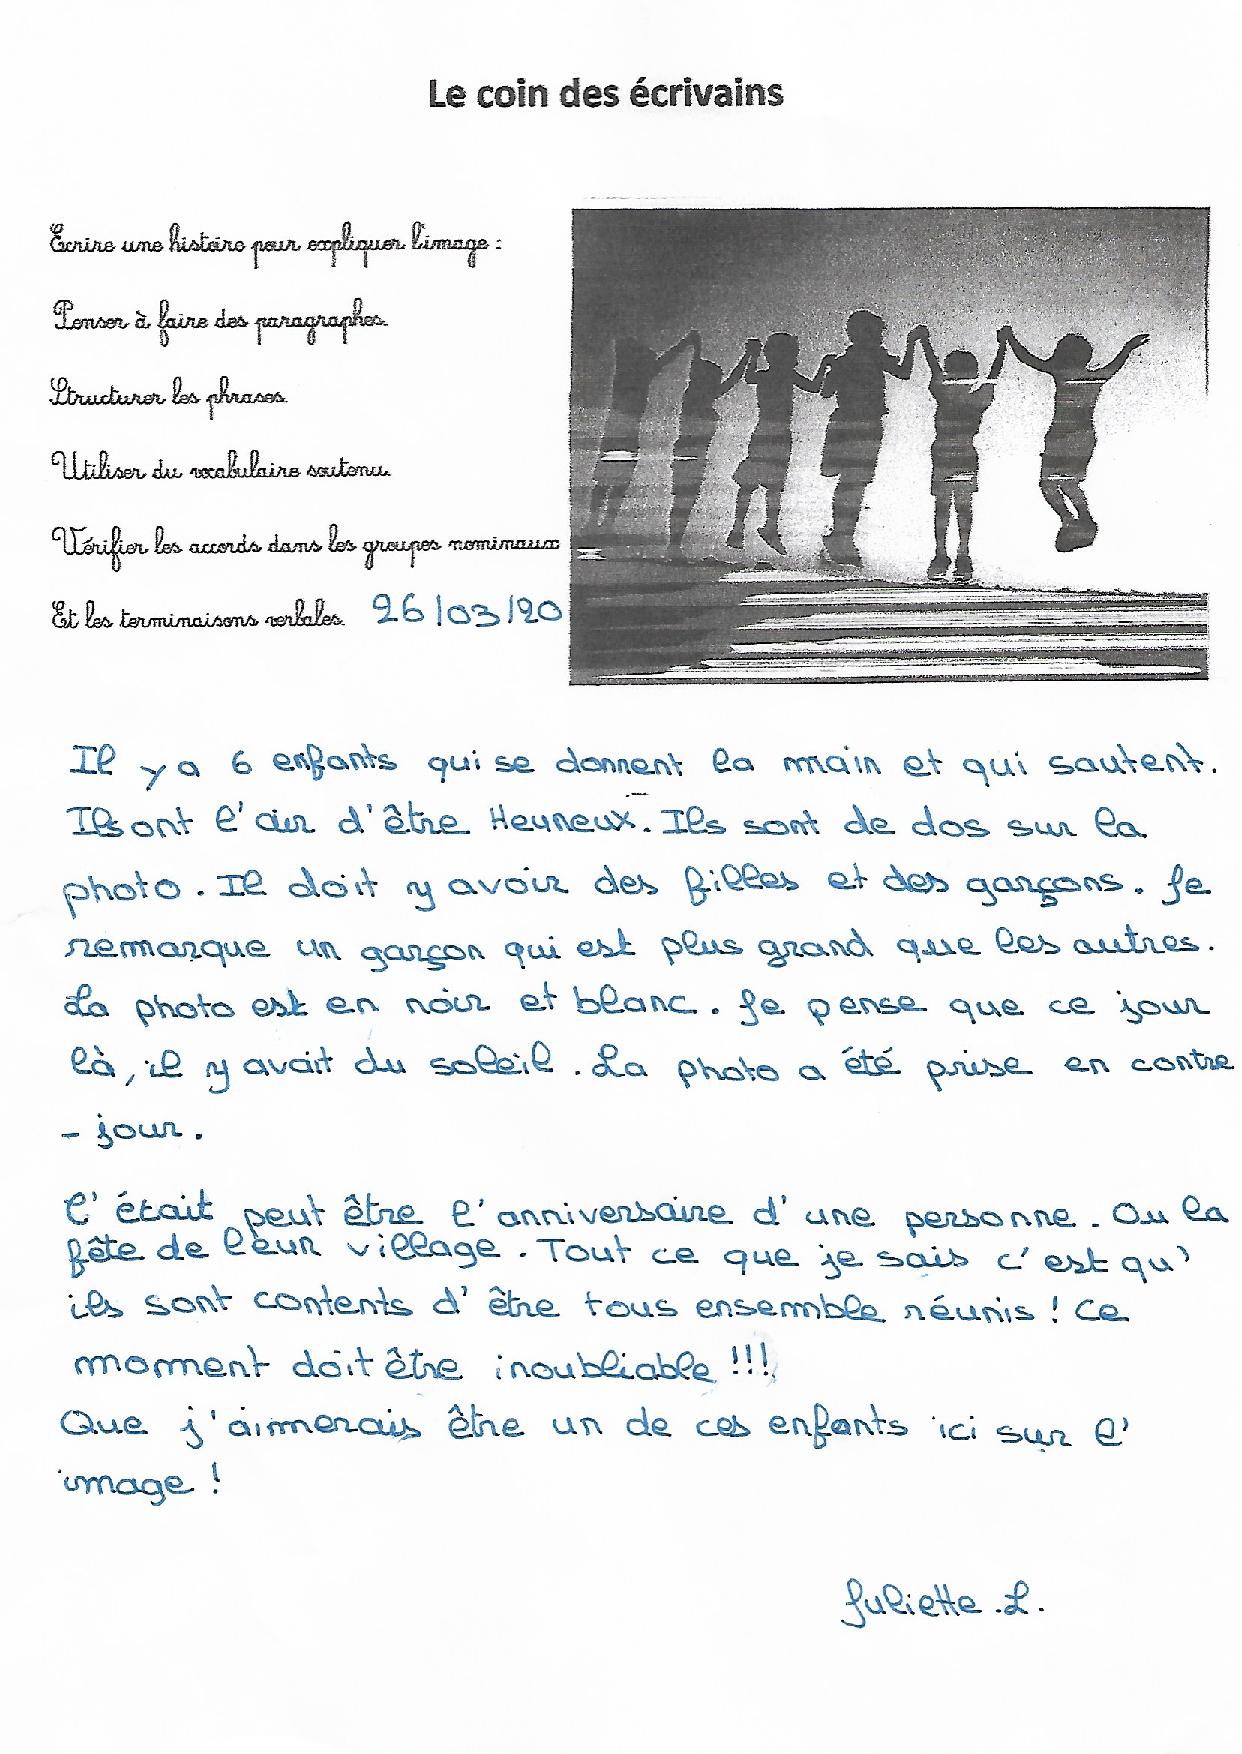 Le coin des écrivains
Ecrire une histoire pour expliquer l'image :
Penser à faire des paragraphes.
Structurer les phrases.
Utiliser du vocabulaire soutenu.
Vérifier les accords dans les groupes nominaux
Et les terminaisons verbales. 26/03/20
Il y a 6 enfants qui se donnent la main et qui sautent.
Ils ont l'air d'être Heureux. Ils sont de dos sur la
photo. Il doit y avoir des filles et des garçons. Je
remarque un garçon qui est plus grand que les autres.
La photo est en noir et blanc. Je pense que ce jour
là, il y avait du soleil. La photo a été prise en contre
- jour.
C'était peut être l'anniversaire d'une personne. Ou la
fête de leur village. Tout ce que je sais c'est qu'
ils sont contents d'être tous ensemble réunis ! Ce
moment doit être inoubliable !!!
Que j'aimerais être un de ces enfants ici sur l'
image !
Juliette .L.